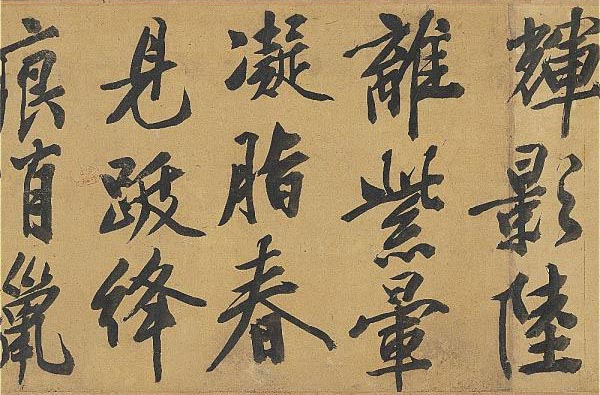 輝影陸
離紫暈
凝脂春
見跋絳
痕